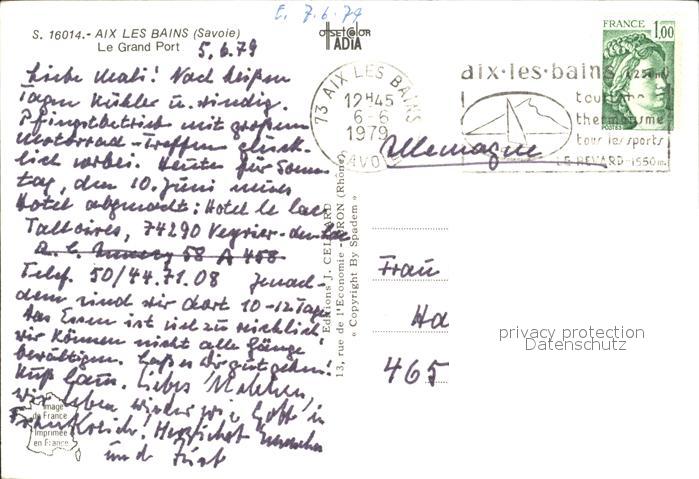 E. 7.6.79
S. 16014.- AIX LES BAINS (Savoie)
Le Grand Port
5.6.79
OFFSET COLOR
IADIA
FRANCE
1,00
POSTES
73 AIX LES BAINS
12H45
6-6
1979
SAVOIE
aix·les·bains (250m)
tourisme
thermalisme
tous les sports
LE REVARD-1550m
Allemagne
Liebe Mali! Nach heißen
Tagen kühler u. windig.
Pfingstbetrieb mit großem
Motorrad-Treffen glück-
lich vorbei. Heute für Sonn-
tag, den 10. Juni neues
Hotel abgemacht: Hotel le lac
Talloires, 74290 Veyrier-du-Lac
58 A 408
Telef. 50/44.71.08
dem sind wir dort 10-12 Tage
Das Essen ist viel zu reichlich
wir können nicht alle Gänge
bewältigen. Laß es Dir gut gehn!
Kuß Liebes
wir leben wieder wie Gott in
Frankreich! Herzlichst
und
Editions J. CELLARD
13, rue de l'Economie - BRON (Rhône)
« Copyright By Spadem »
Frau
Ha
465
privacy protection
Datenschutz
Image
de France
Imprimée
en France